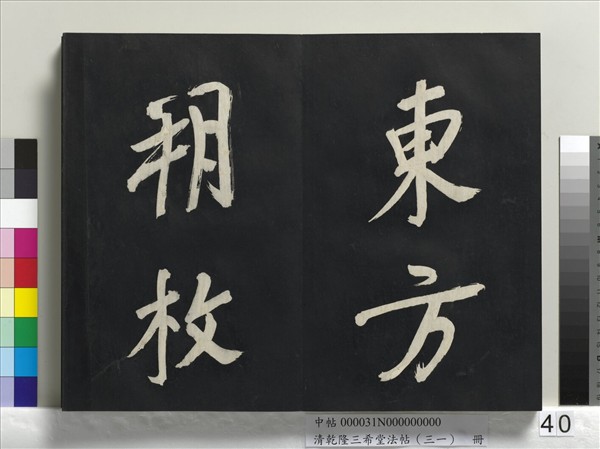 東方
朔枚
中帖 000031N000000000
清乾隆三希堂法帖（三一） 冊
40